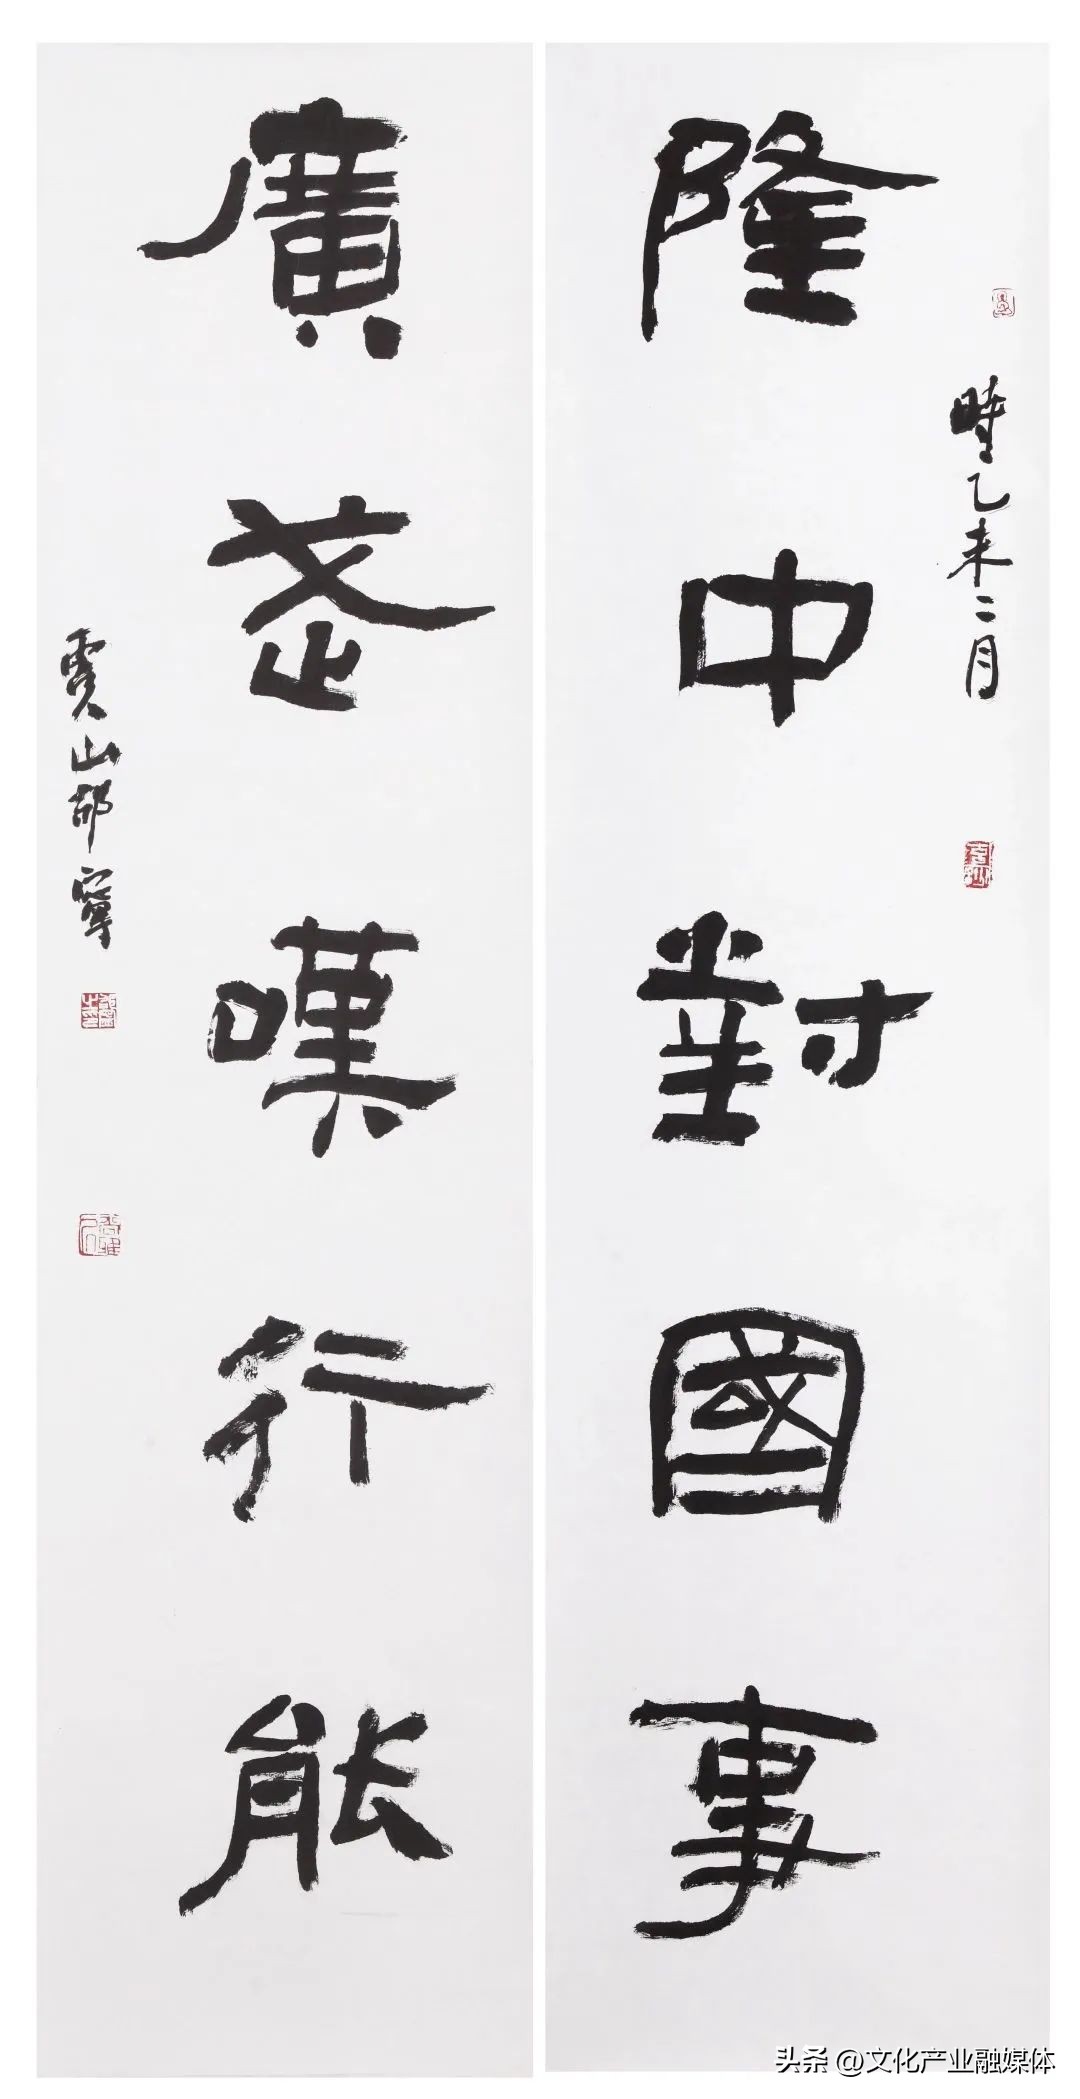 隆中對國事
時乙未二月
廣武嘆行能
山
頭条 @文化产业融媒体